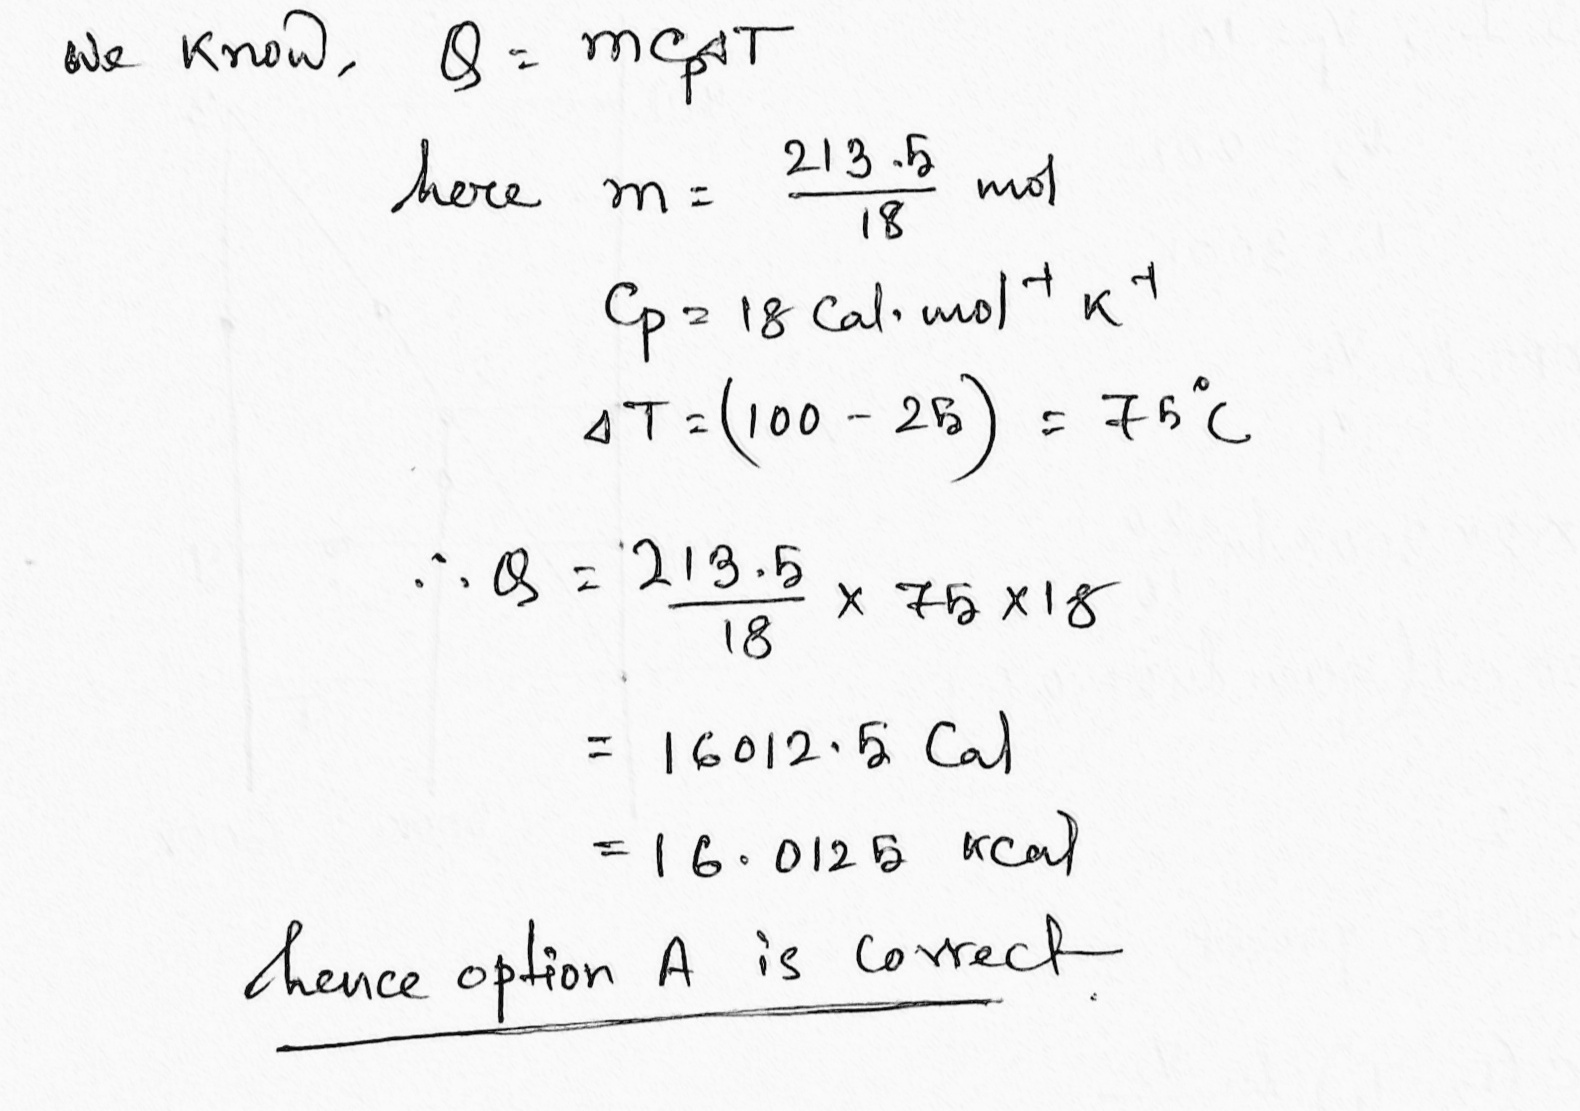 we know, Q = mCpΔT
here m = 213.5/18 mol
Cp = 18 Cal. mol⁻¹ K⁻¹
ΔT = (100 - 25) = 75°C
∴ Q = 213.5/18 × 75 × 18
= 16012.5 Cal
= 16.0125 kcal
hence option A is correct.